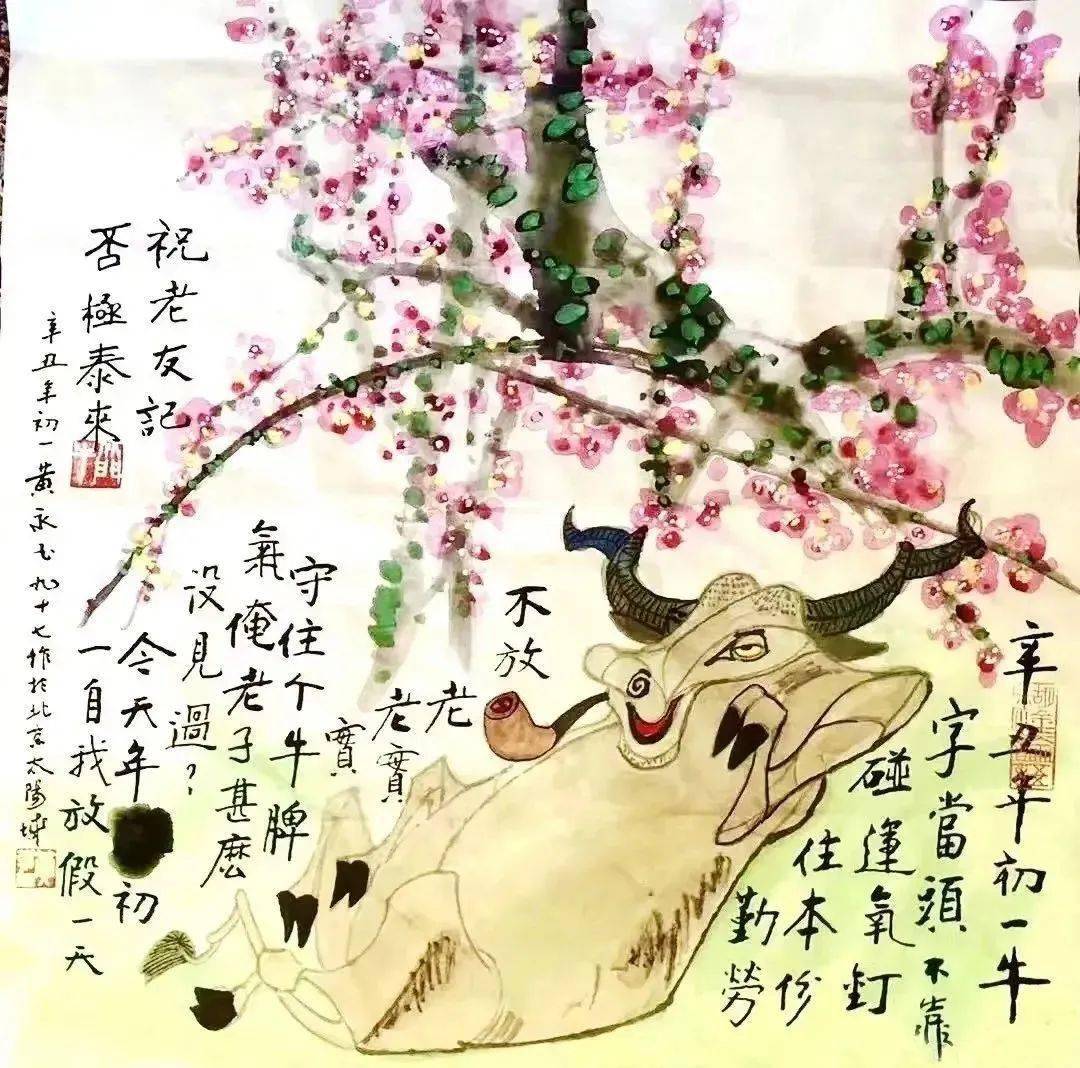 辛丑年初一牛
字當頭不靠
碰運氧釘
住本份
勤勞
不放
老
老實
實
守住个牛脾
氣俺老子甚麽
没見過？
今天年初
一自我放假一天
祝老友記
否極泰來
辛丑年初一黄永玉九十七作於北京太陽城